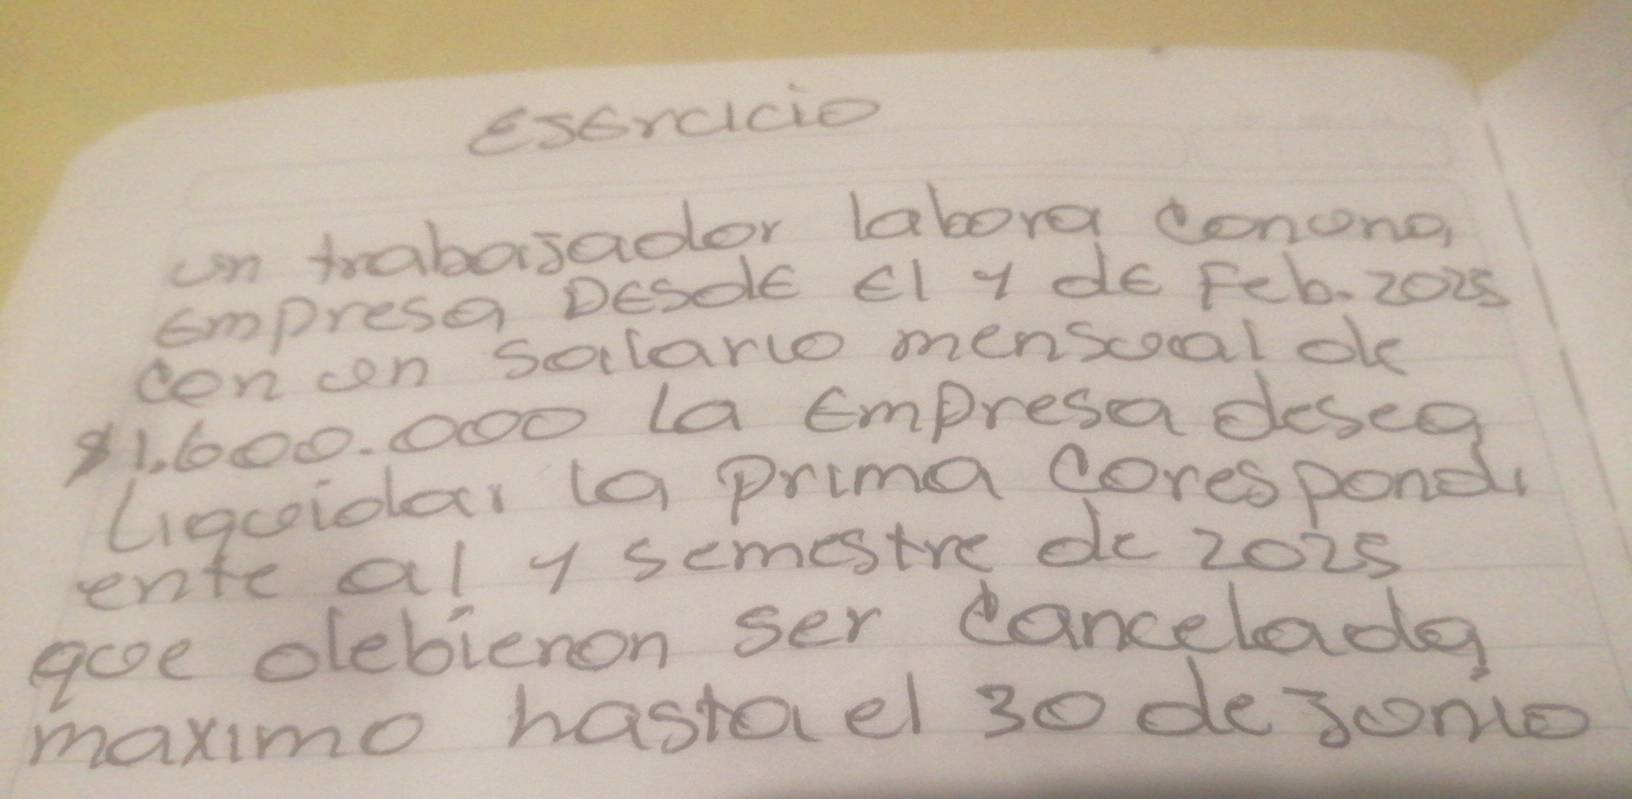 Esercicio
un trabajador labora con una
empresa Desde el 1 de Feb. 2025
con un salario mensual de
$1.600.000 la empresa desea
Liquidar la prima corespondi
ente al 1 semestre de 2025
que debieron ser cancelada
maximo hasta el 30 de junio